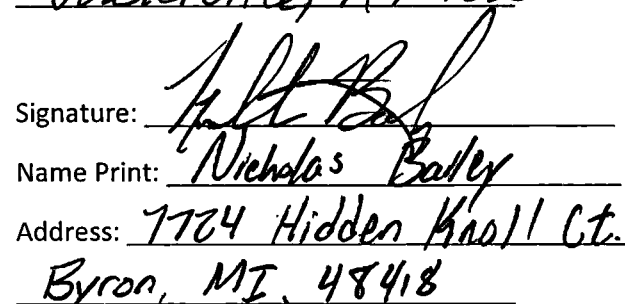 Signature:
Name Print: Nicholas Bailey
Address: 7724 Hidden Knoll Ct.
Byron, MI, 48418